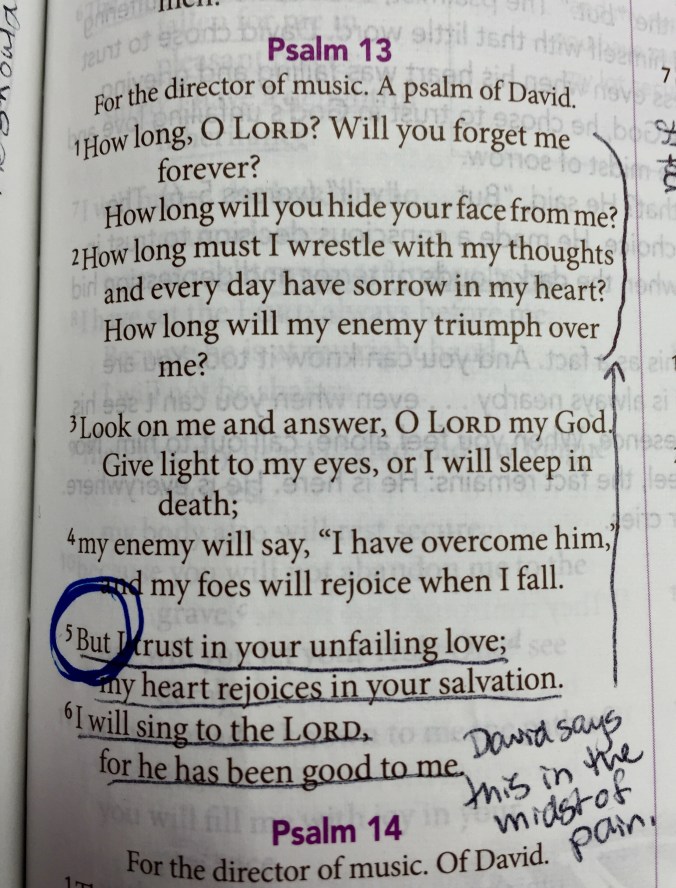 Psalm 13
For the director of music. A psalm of David.
1How long, O LORD? Will you forget me
forever?
How long will you hide your face from me?
2How long must I wrestle with my thoughts
and every day have sorrow in my heart?
How long will my enemy triumph over
me?
3Look on me and answer, O LORD my God.
Give light to my eyes, or I will sleep in
death;
4my enemy will say, “I have overcome him,”
and my foes will rejoice when I fall.
5But I trust in your unfailing love;
my heart rejoices in your salvation.
6I will sing to the LORD,
for he has been good to me.
David says
this in the
midst of
pain.
Psalm 14
For the director of music. Of David.
7